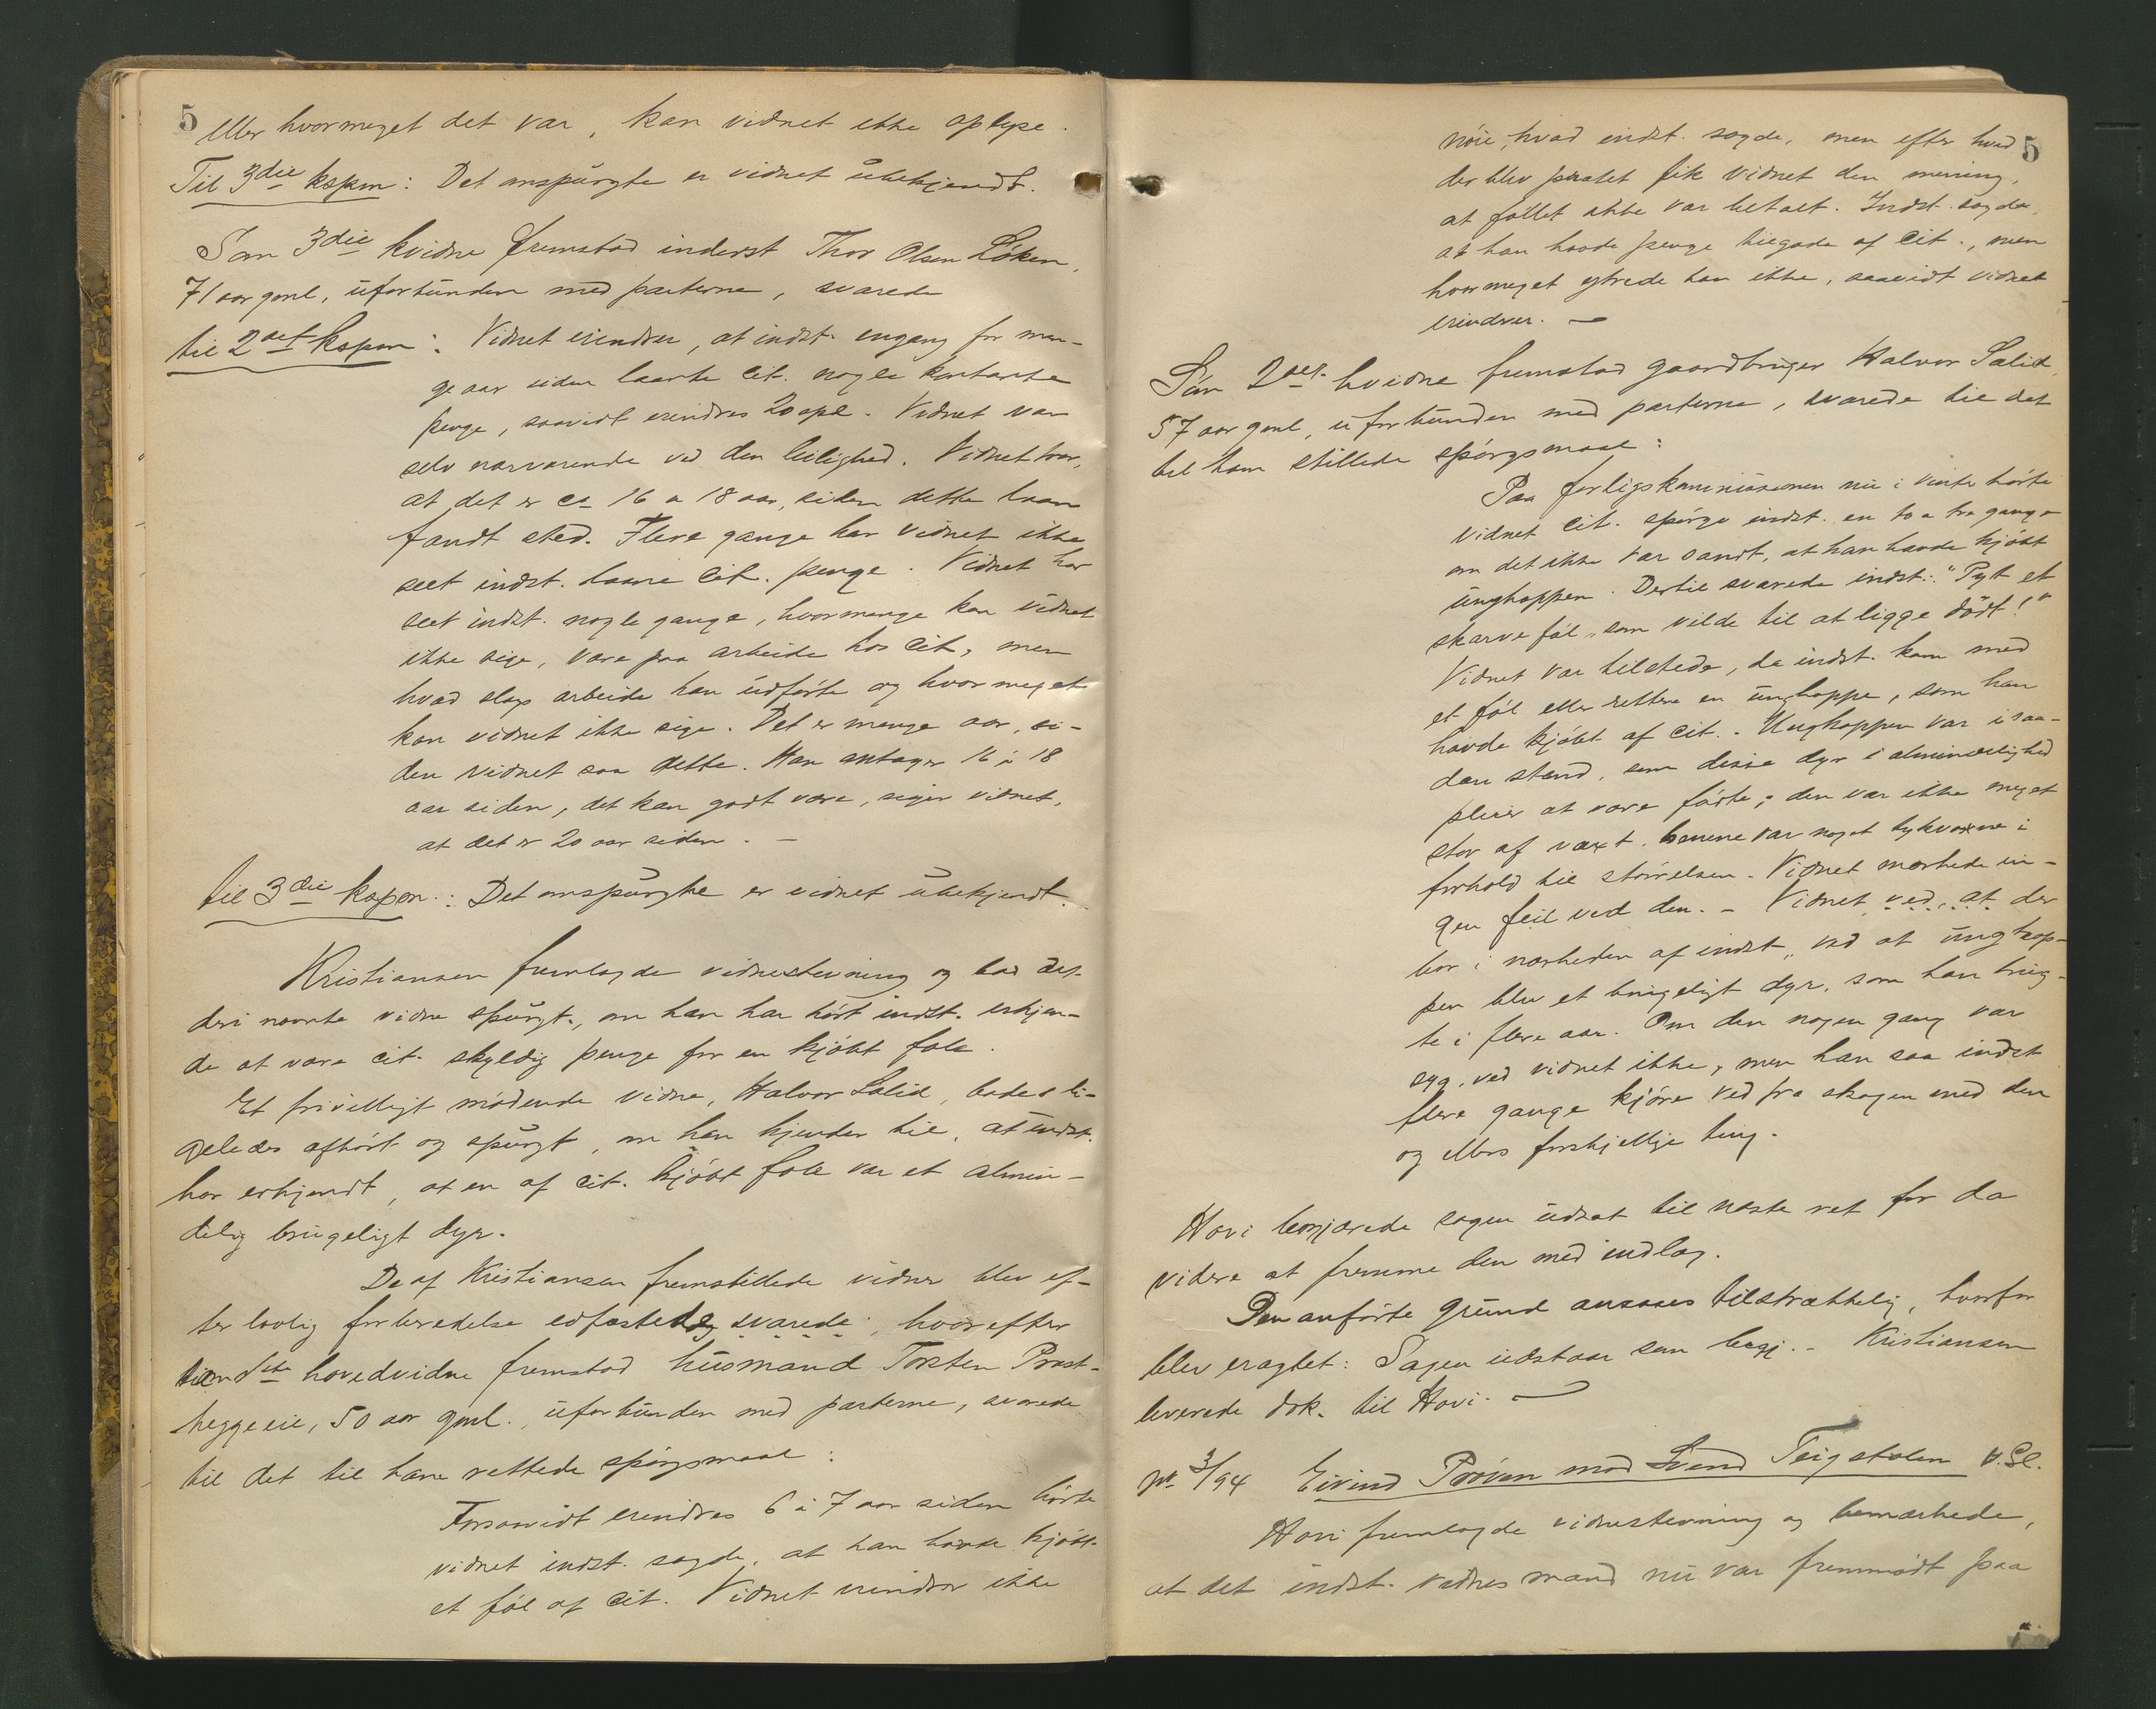 5
eller hvormeget det var, kan vidnet ikke oplyse.
Til 3die kspm: Det anspurgte er vidnet ubekjendt.
Som 3die kvidne fremstod inderst Thor Olsen Løken,
71 aar gml, uforbunden med parterne, svarede
til 2det kspm: Vidnet erindrer, at indst. engang for man-
ge aar siden laante cit. nogle kontante
penge, saavidt erindres 20 spd. Vidnet var
selv nærværende ved den leilighed. Vidnet tror,
at det er ca 16 a 18 aar, siden dette laan
fandt sted. Flere gange har vidnet ikke
seet indst. laane cit. penge. Vidnet har
seet indst. nogle gange, hvormange kan vidnet
ikke sige, være paa arbeide hos cit, men
hvad slags arbeide han udførte og hvor meget
kan vidnet ikke sige. Det er mange aar, si-
den vidnet saa dette. Han antager 16 à 18
aar siden, det kan godt være, siger vidnet,
at det er 20 aar siden. —
til 3die kspm.: Det anspurgte er vidnet ubekjendt.
Kristiansen fremlagde vidnestevning og bad det
deri nævnte vidne spurgt, om han har hørt indst. erkjen-
de at være cit. skyldig penge for en kjøbt fole.
Et frivilligt mødende vidne, Halvor Solid, bades li-
geledes afhørt og spurgt, om han kjender til, at indst.
har erkjendt, at en af cit. kjøbt fole var et almin-
delig brugeligt dyr.
De af Kristiansen fremstillede vidner blev ef-
ter lovlig forberedelse edfæstede svarede, hvorefter
som 1ste hovedvidne fremstod husmand Torsten Præst-
heggeeie, 50 aar gml., uforbunden med parterne, svarede
til det til ham rettede spørgsmaal:
Forsaavidt erindres 6 à 7 aar siden hørte
vidnet indst. sagde, at han havde kjøbt
et føl af cit. Vidnet erindrer ikke
5
nøie, hvad indst. sagde, men efter hvad
der blev pratet fik vidnet den mening,
at føllet ikke var betalt. Indst. sagde,
at han havde penge tilgode af cit., men
hvormeget ytrede han ikke, saavidt vidnet
erindrer. —
Som 2det hvidne fremstod gaardbruger Halvor Solid,
57 aar gml, uforbunden med parterne, svarede til det
til ham stillede spørgsmaal:
Paa forligskommissionen nu i vinter hørte
vidnet cit. spørge indst. en to a tre gange
om det ikke var sandt, at han havde kjøbt
unghoppen. Dertil svarede indst.: "Pyt et
skarve føl, som vilde til at ligge dødt!"
Vidnet var tilstede, da indst. kom med
et føl eller rettere en unghoppe, som han
havde kjøbt af cit. Unghoppen var i saa-
dan stand, som disse dyr i almindelighed
pleier at væreførte; den var ikke meget
stor af vært. benene var noget tykvoxne i
forhold til størrelsen. Vidnet mærkede in-
gen feil ved den. – Vidnet ved, at der
bor i nærheden af indst., ved at unghop-
pen blev et brugeligt dyr, som han brug-
te i flere aar. Om den nogen gang var
syg, ved vidnet ikke, men han saa indst
flere gange kjøre ved fra skogen med den
og ellers forskjellige ting.
Hovi begjærede sagen udsat til næste ret for da
videre at fremme den med indlæg.
Den anførte grund ansaaes tilstrækkelig, hvorfor
blev eragtet: Sagen udstaar som begj. – Kristiansen
leverede dok. til Hovi. —
No 3/94 Eivind Prøven mod Svend Teigstølen V.Sl.
Hovi fremlagde vidnestevning og bemærkede,
at det indst. vidnes mand nu var fremmødt paa